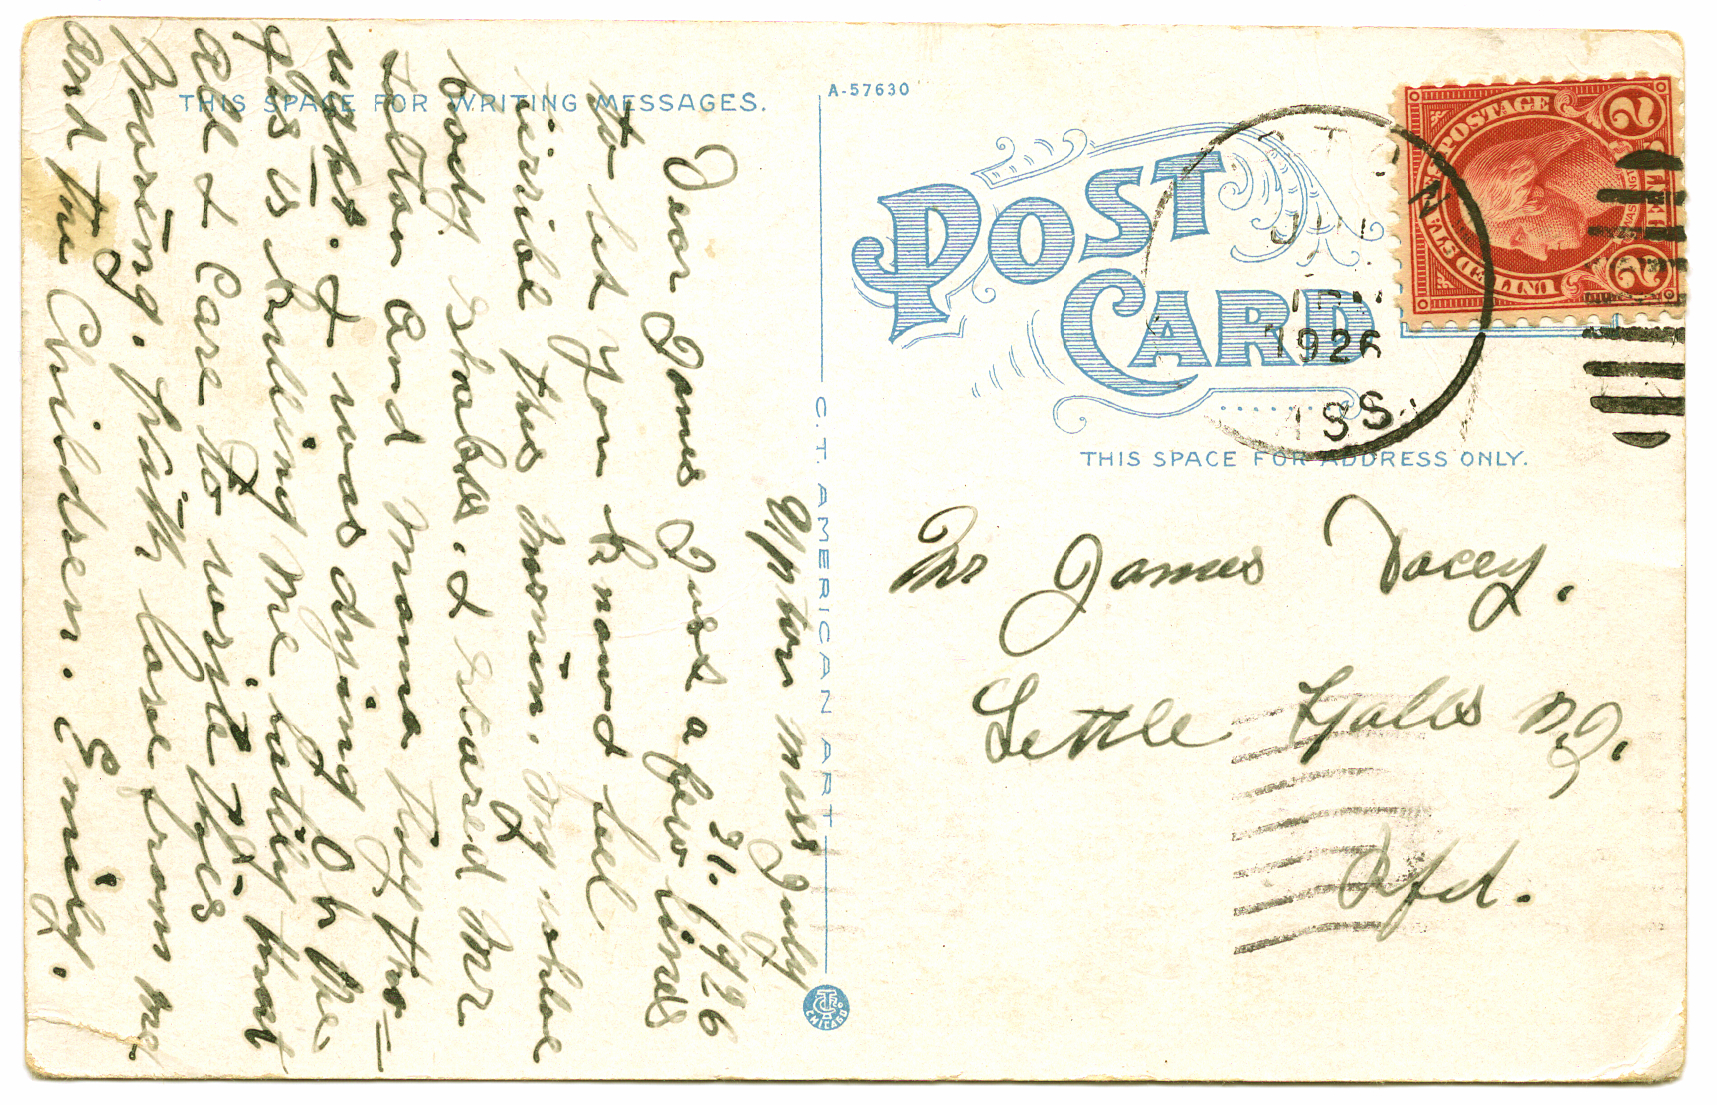 THIS SPACE FOR WRITING MESSAGES.
A-57630
POST
CARD
THIS SPACE FOR ADDRESS ONLY.
C.T. AMERICAN ART
CHICAGO
POSTAGE
2
2
JUN
1926
ASS
Mr James Tocey,
Little Falls N.J.
Rfd.
Upton Mass July
31. 1926
Dear James Just a few lines
to let you know I feel
mirribel this mornin. My whole
body shakes. I scared Mr
and mama they tho-
ught. I was dying Oh the
gas is hurting me I justly that
all I care to write this
morning. with love from me
and the Children. Emily.